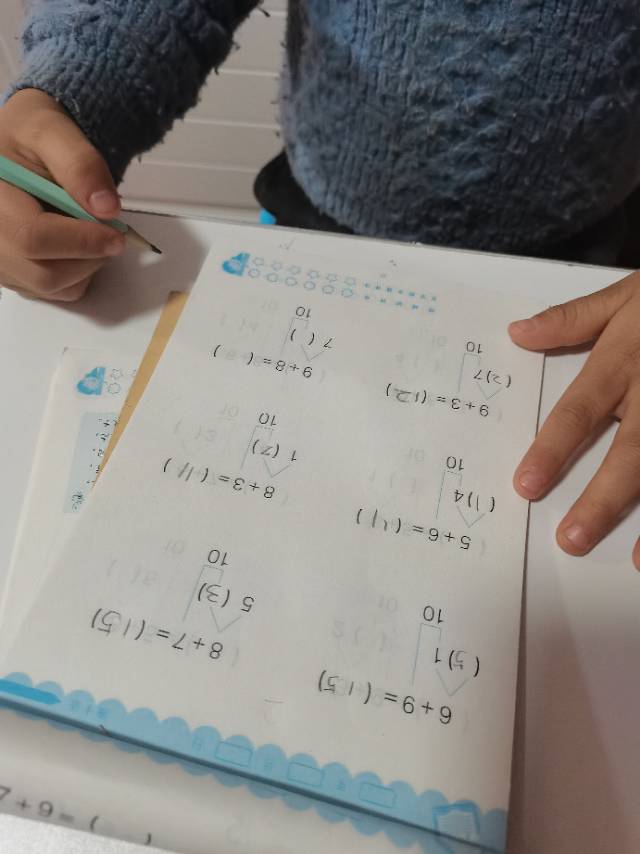 6+9=(15)
(5) 1
10
8+7=(15)
5 (3)
10
5+6=(11)
(1) 4
10
8+3=(11)
1 (7)
10
9+3=(12)
(2) 7
10
9+8=( )
7 ( )
10